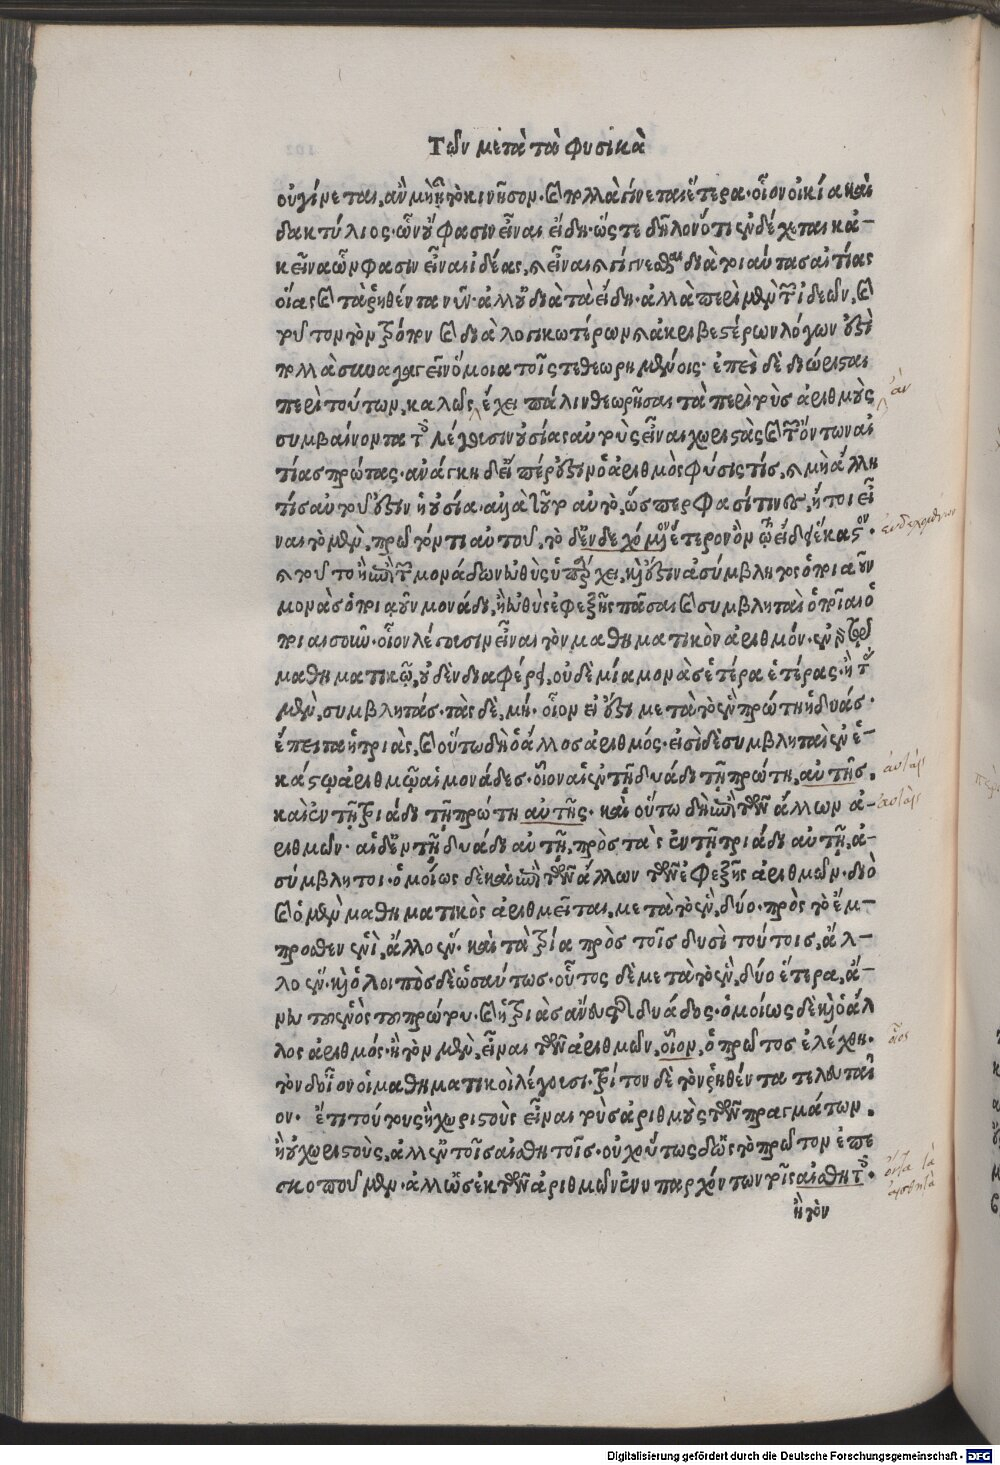 Τῶν μετὰ τὰ φυσικὰ
οὐ γίνεται, ἂν μὴ ᾖ τὸ κινῆσον. καὶ πολλὰ γίνεται ἕτερα. οἷον οἰκία καὶ
δακτύλιος. ὧν οὔ φασιν εἶναι εἴδη. ὥστε δῆλον ὅτι ἐνδέχεται κἀ-
κεῖνα ὧν φασιν εἶναι ἰδέας, καὶ εἶναι καὶ γίγνεσθαι διὰ τοιαύτας αἰτίας
οἵας καὶ τὰ ῥηθέντα νῦν. ἀλλ' οὐ διὰ τὰ εἴδη. ἀλλὰ περὶ μὲν τῶν ἰδεῶν, καὶ
τοῦτον τὸν τρόπον καὶ διὰ λογικωτέρων καὶ ἀκριβεστέρων λόγων ἐστὶ
πολλὰ συναγαγεῖν ὅμοια τοῖς τεθεωρημένοις. ἐπεὶ δὲ διώρισται
περὶ τούτων, καλῶς ἔχει πάλιν θεωρῆσαι τὰ περὶ τοὺς ἀριθμοὺς
ἂν
συμβαίνοντα τοῖς λέγουσιν οὐσίας αὐτοὺς εἶναι χωριστὰς καὶ τῶν ὄντων αἰ
τίας πρώτας. ἀνάγκη δ' εἴπερ ἐστὶν ὁ ἀριθμὸς φύσις τίς, καὶ μὴ ἄλλη
τίς αὐτοῦ ἐστιν ἡ οὐσία. ἀλλὰ τοῦτ' αὐτὸ, ὥσπερ φασί τινες, ἤτοι εἶ
ναι τὸ μὲν, πρῶτόν τι αὐτοῦ, τὸ δ' ἐνδεχόμενον ἕτερον ὂν τῷ εἴδει ἕκαστον.
ἐνδεχομένων
καὶ τοῦτο ἢ ἐπὶ τῶν μονάδων εὐθὺς ὑπάρχει, καὶ ἔστιν ἀσύμβλητος ὁποιαοῦν
μονὰς ὁποιαοῦν μονάδι, ἢ εὐθὺς ἐφεξῆς πᾶσαι καὶ συμβληταὶ ὁποῖαι ὁ
ποιαισοῦν. οἷον λέγουσιν εἶναι τὸν μαθηματικὸν ἀριθμόν. ἐν γὰρ τῷ
μαθηματικῷ, οὐδὲν διαφέρει, οὐδεμία μονὰς ἑτέρα ἑτέρας. ἢ τὰς
μὲν, συμβλητάς. τὰς δὲ, μή. οἷον εἰ ἔστι μετὰ τὸ ἓν πρώτη ἡ δυάς.
ἔπειτα ἡ τριὰς, καὶ οὕτω δὴ ὁ ἄλλος ἀριθμός. εἰσὶ δὲ συμβληταὶ ἐν ἑ-
κάστῳ ἀριθμῷ αἱ μονάδες. οἷον αἱ ἐν τῇ δυάδι τῇ πρώτῃ, αὐτῆς.
αὑταῖς
καὶ ἐν τῇ τριάδι τῇ πρώτῃ αὐτῆς. καὶ οὕτω δὴ ἐπὶ τῶν ἄλλων ἀ-
αὑταῖς
ριθμῶν. αἱ δ' ἐν τῇ δυάδι αὐτῇ, πρὸς τὰς ἐν τῇ τριάδι αὐτῇ, ἀ-
σύμβλητοι. ὁμοίως δὲ καὶ ἐπὶ τῶν ἄλλων τῶν ἐφεξῆς ἀριθμῶν. διὸ
καὶ ὁ μὲν μαθηματικὸς ἀριθμεῖται, μετὰ τὸ ἓν, δύο. πρὸς τὸ ἔμ-
προσθεν ἑνὶ, ἄλλο ἕν. καὶ τὰ τρία πρὸς τοῖς δυσὶ τούτοις, ἄλ-
λο ἕν. καὶ ὁ λοιπὸς δὲ ὡσαύτως. οὗτος δὲ μετὰ τὸ ἓν, δύο ἕτερα, ἄ-
νευ τοῦ ἑνὸς τοῦ πρώτου. καὶ ἡ τριὰς ἄνευ τῆς δυάδος. ὁμοίως δὲ καὶ ὁ ἄλ
λος ἀριθμός. ἢ τὸν μὲν, εἶναι τῶν ἀριθμῶν, οἷον, ὁ πρῶτος ἐλέχθη.
οἷος
τὸν δ' οἷον οἱ μαθηματικοὶ λέγουσι. τρίτον δὲ τὸν ῥηθέντα τελευταῖ
ον. ἔτι τούτους ἢ χωριστοὺς εἶναι τοὺς ἀριθμοὺς τῶν πραγμάτων.
ἢ οὐ χωριστοὺς, ἀλλ' ἐν τοῖς αἰσθητοῖς. οὐχ οὕτως δ' ὡς τὸ πρῶτον ἐπε
σκοποῦμεν. ἀλλ' ὡς ἐκ τῶν ἀριθμῶν ἐνυπαρχόντων τοῖς αἰσθητοῖς.
ὄντα τὰ
αἰσθητὰ
ἢ τὸν
Digitalisierung gefördert durch die Deutsche Forschungsgemeinschaft - DFG